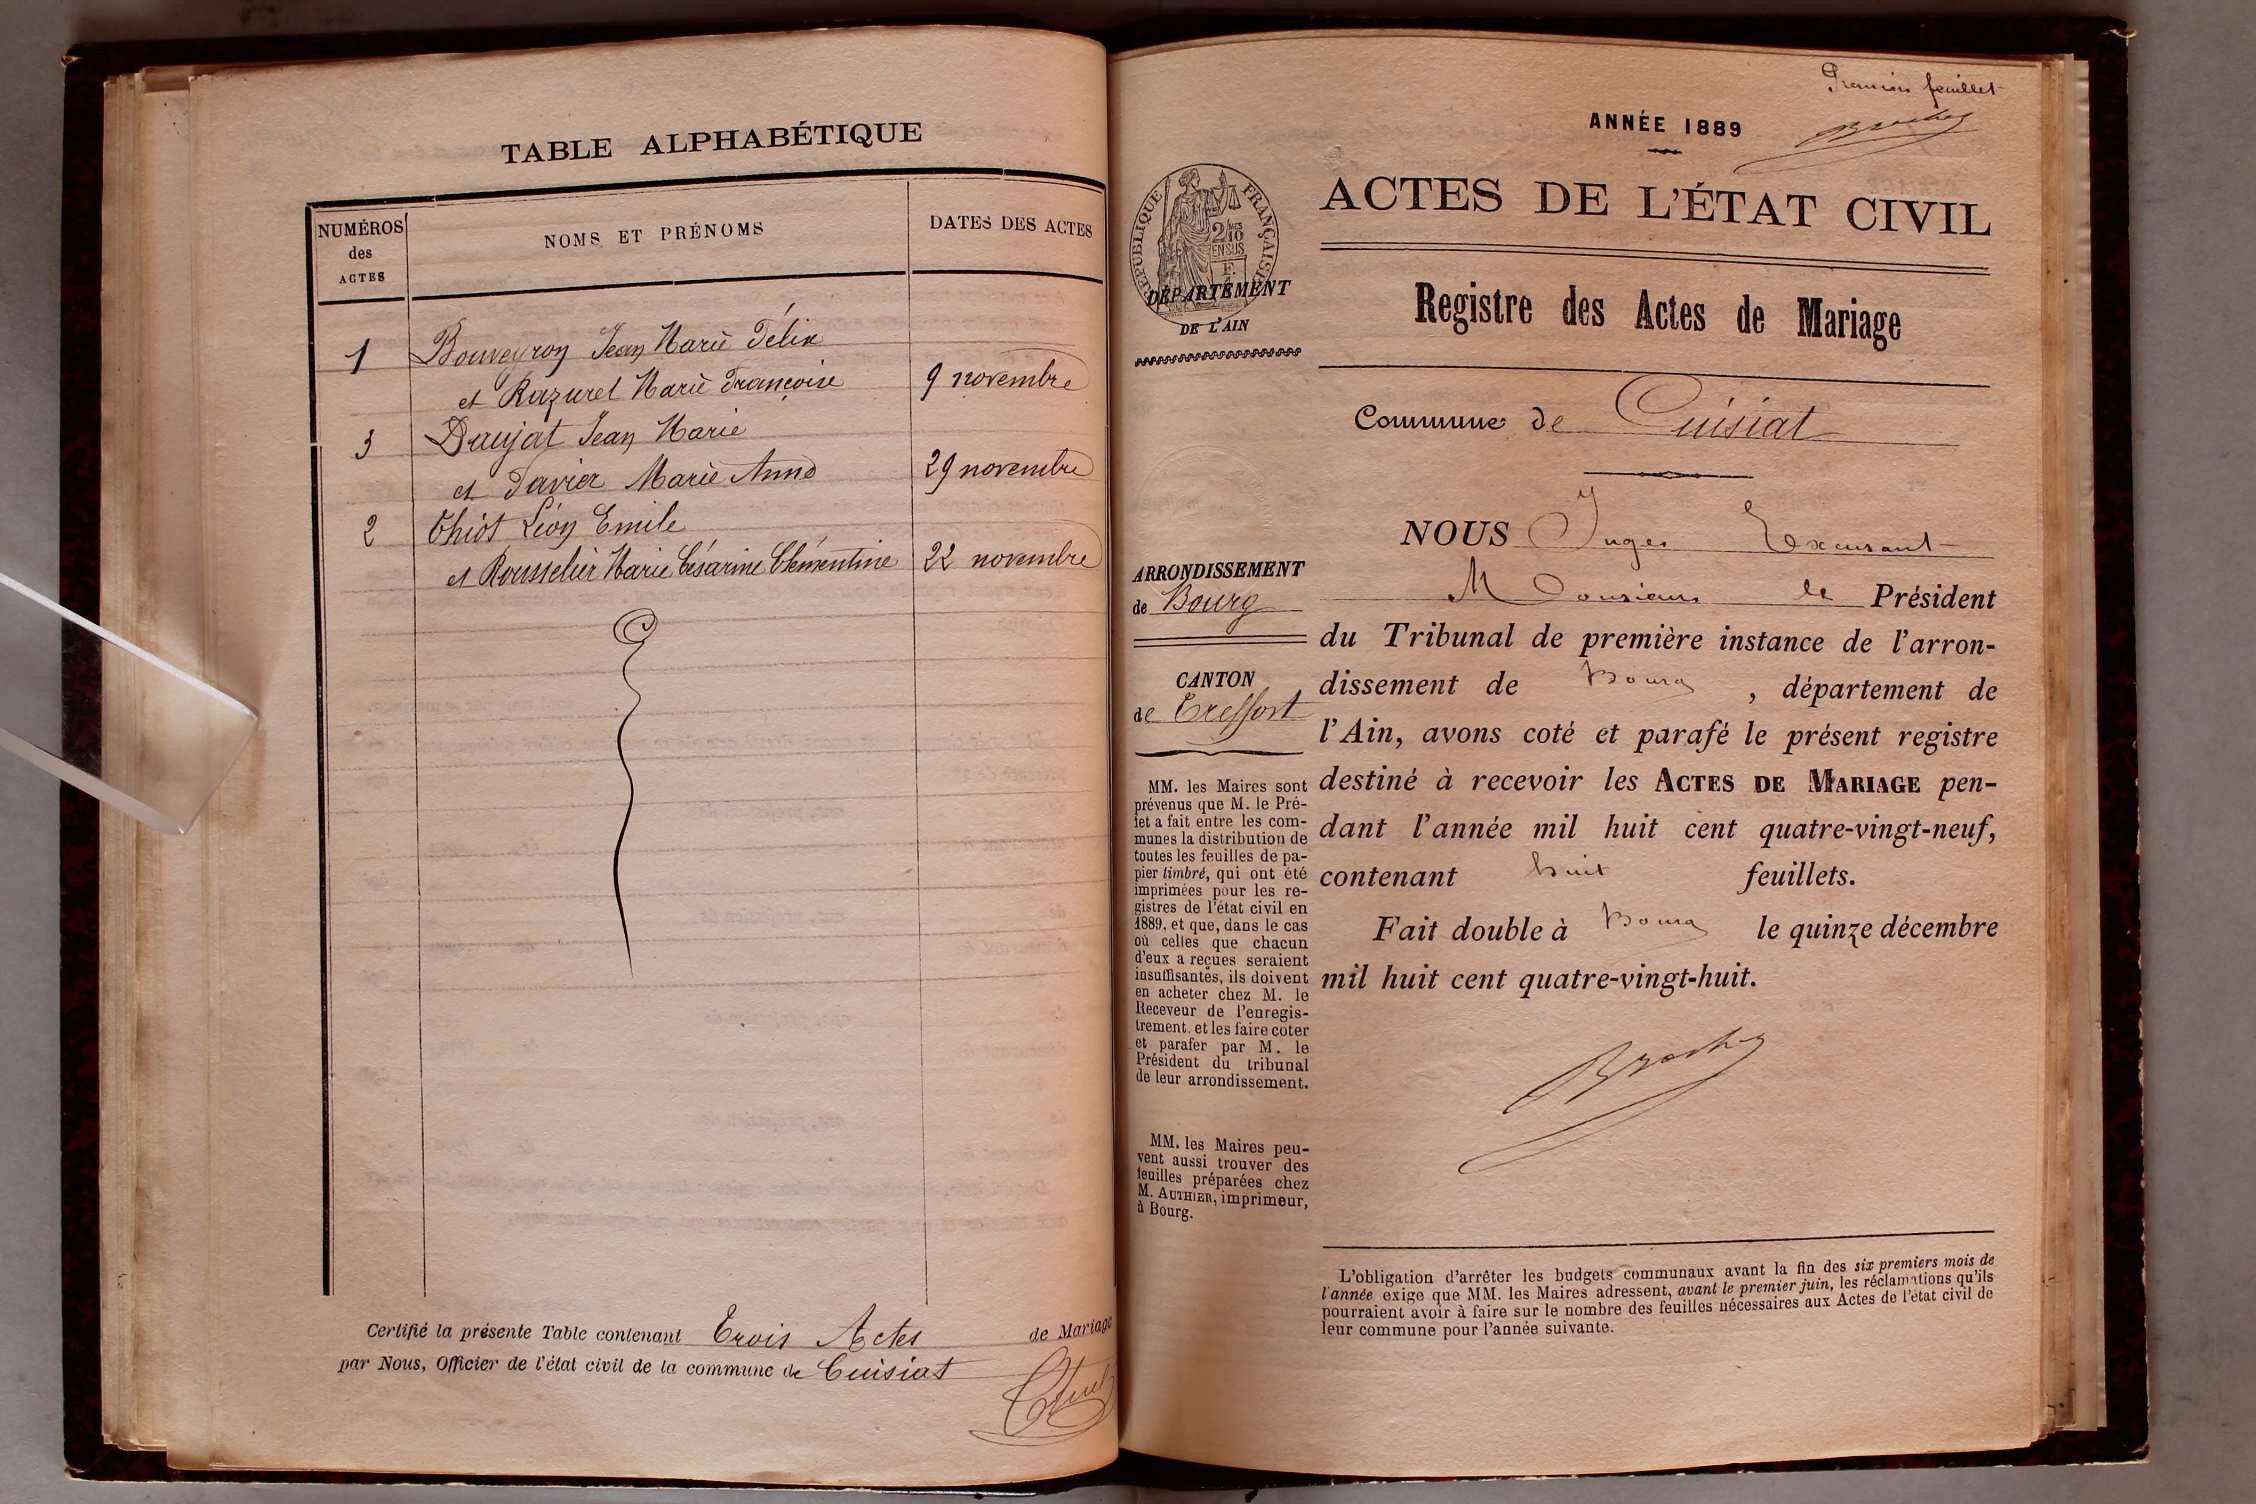 TABLE ALPHABÉTIQUE
NUMÉROS
des
ACTES
NOMS ET PRÉNOMS
DATES DES ACTES
1 Bouveyron Jean Marie Félix
et Razurel Marie Françoise 9 novembre
3 Daujat Jean Marie
et Javier Marie Anne 29 novembre
2 Thiot Léon Emile
et Rousselier Marie Césarine Clémentine 22 novembre
Certifié la présente Table contenant Trois Actes de Mariage
par Nous, Officier de l'état civil de la commune de Cuisiat
Premier feuillet
ANNÉE 1889
RÉPUBLIQUE FRANÇAISE
2/10
EN SUS
DÉPARTEMENT
DE L'AIN
ARRONDISSEMENT
de Bourg
CANTON
de Treffort
MM. les Maires sont
prévenus que M. le Pré-
fet a fait entre les com-
munes la distribution de
toutes les feuilles de pa-
pier timbré, qui ont été
imprimées pour les re-
gistres de l'état civil en
1889, et que, dans le cas
où celles que chacun
d'eux a reçues seraient
insuffisantes, ils doivent
en acheter chez M. le
Receveur de l'enregis-
trement, et les faire coter
et parafer par M. le
Président du tribunal
de leur arrondissement.
MM. les Maires peu-
vent aussi trouver des
feuilles préparées chez
M. AUTHIER, imprimeur,
à Bourg.
ACTES DE L'ÉTAT CIVIL
Registre des Actes de Mariage
Commune de Cuisiat
NOUS Juge Excusant
Monsieur le Président
du Tribunal de première instance de l'arron-
dissement de Bourg, département de
l'Ain, avons coté et parafé le présent registre
destiné à recevoir les ACTES DE MARIAGE pen-
dant l'année mil huit cent quatre-vingt-neuf,
contenant huit feuillets.
Fait double à Bourg le quinze décembre
mil huit cent quatre-vingt-huit.
L'obligation d'arrêter les budgets communaux avant la fin des six premiers mois de
l'année exige que MM. les Maires adressent, avant le premier juin, les réclamations qu'ils
pourraient avoir à faire sur le nombre des feuilles nécessaires aux Actes de l'état civil de
leur commune pour l'année suivante.